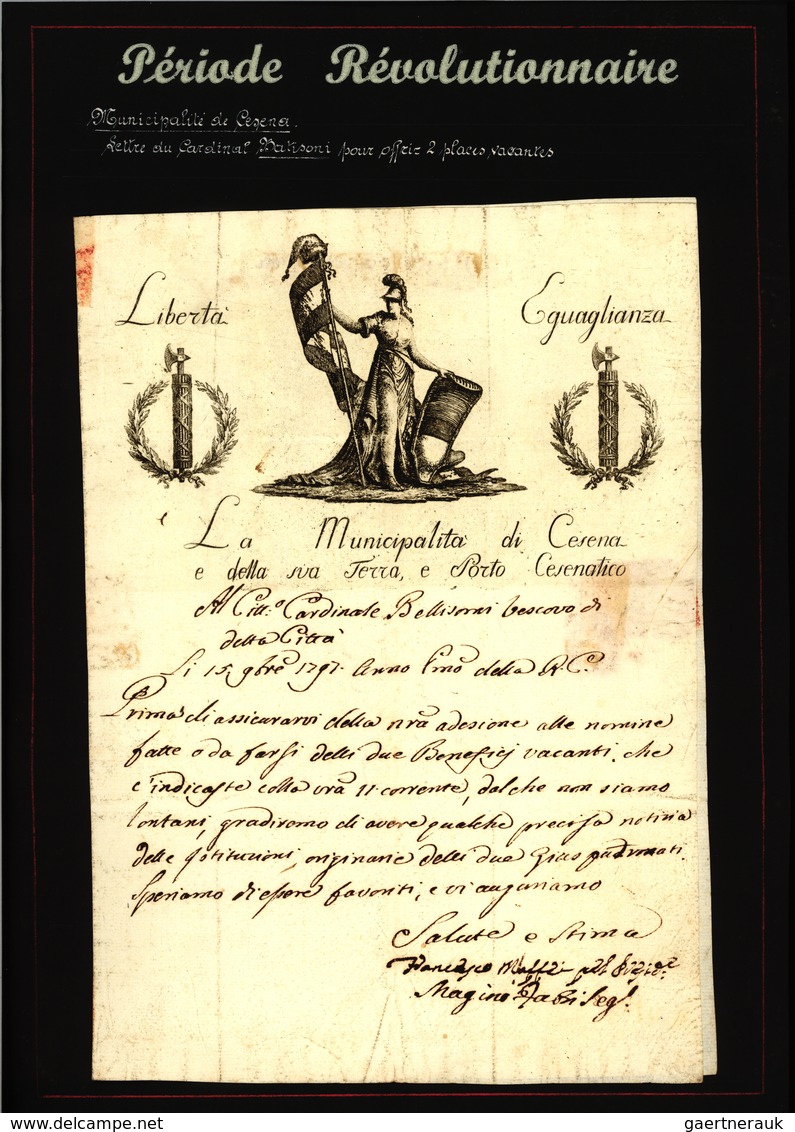 Période Révolutionnaire
Municipalité de Cesena.
Lettre du Cardinal Batisoni pour offrir 2 places vacantes
Libertà
Eguaglianza
La Municipalità di Cesena
e della sua Terra, e Porto Cesenatico
Al Citt.º Cardinale Bellisomi Vescovo di
detta Città
Li 15. 9bre 1797. Anno Pmo della R. C.
Prima di assicurarvi della nrâ adesione alle nomine
fatte o da farsi delli due Beneficj vacanti, che
c'indicaste colla vrâ 11 corrente, dal che non siamo
lontani, gradiremo di avere qualche precosa notizia
delle Istituzioni, originarie delli due Gius padronati.
Speriamo di essere favoriti, e vi auguriamo
Salute e Stima
Francesco
Magino Fabri Seg.
delcampe.net
gaertnerauk